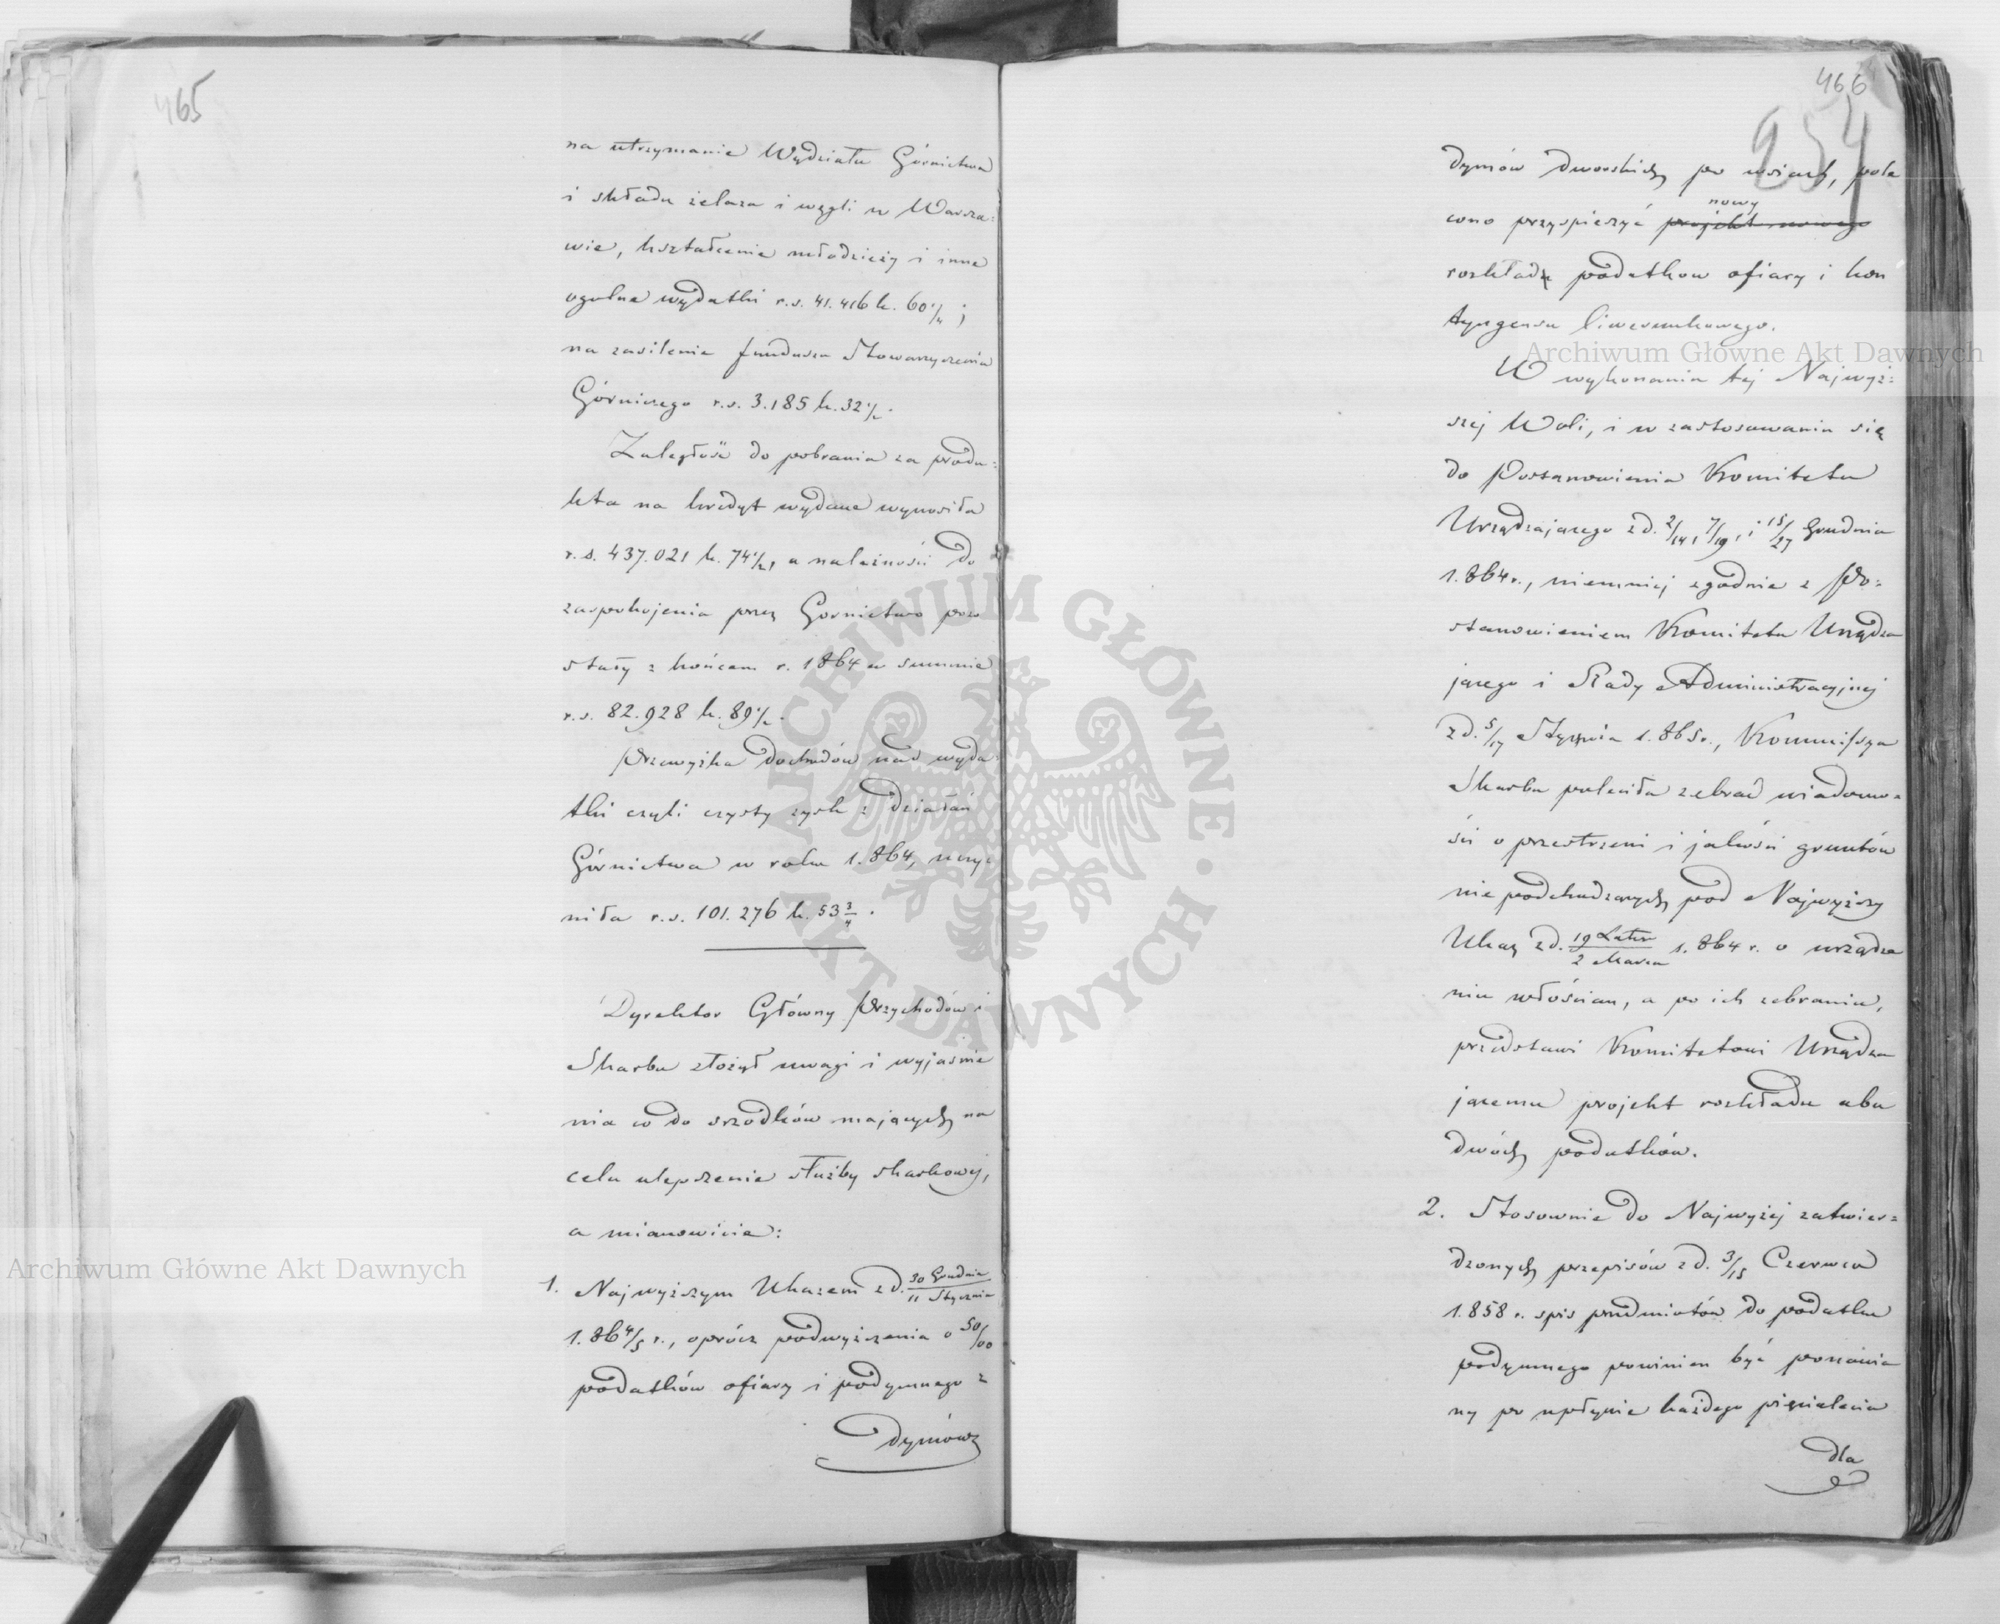 465
na utrzymanie Wydziału Górnictwa
i składu żelaza i węgli w Warsza=
wie, kształcenie młodzieży i inne
ogólne wydatki r.s. 41.416 k. 60 1/4;
na zasilenie funduszu Stowarzyszenia
Górniczego r.s. 3.185 k. 32 1/2.
Zaległość do pobrania za produ=
kta na kredyt wydane wynosiła
r.s. 437.021 k. 74 1/2, a należności do
zaspokojenia przez Gornictwo pozo
stały z końcem r. 1864 w summie
r.s. 82.928 k. 89 1/2.
Przewyżka dochodów nad wyda
tki czyli czysty zysk z działań
Górnictwa w roku 1.864, uczy=
niła r.s. 101.276 k. 53 3/4.
Dyrektor Główny Przychodów i
Skarbu złożył uwagi i wyjaśnie
nia co do srzodków mających na
celu ulepszenie służby skarbowej,
a mianowicie:
1. Najwyższym Ukazem z d. 30 Grudnia / 11 Stycznia
1.864/5 r., oprócz podwyższenia o 50/00
podatków ofiary i podymnego z
dymów
466
234
dymów dworskich po wsiach, pole
cono przyspieszyć projekt nowego nowy
rozkład podatkow ofiary i kon
tyngensu liwerunkowego.
W wykonaniu tej Najwyż=
szej Woli, i w zastosowaniu się
do Postanowienia Komitetu
Urządzającego z d. 2/14, 7/19, i 15/27 Grudnia
1.864 r., niemniej zgodnie z Po=
stanowieniem Komitetu Urządza
jącego i Rady Administracyjnej
z d. 5/17 Stycznia 1.865 r., Kommissya
Skarbu poleciła zebrać wiadomo=
ści o przestrzeni i jakości gruntów
nie podchodzących pod Najwyższy
Ukaz z d. 19 Lutego / 2 Marca 1.864 r. o urządze
niu włościan, a po ich zebraniu,
przedstawi Komitetowi Urządza
jącemu projekt rozkładu obu
dwóch podatków.
2. Stosownie do Najwyżej zatwier=
dzonych przepisów z d. 3/15 Czerwca
1.858 r. spis przedmiotów do podatku
podymnego powinien być ponawia
ny po upływie każdego pięciolecia
dla
Archiwum Główne Akt Dawnych
Archiwum Główne Akt Dawnych
ARCHIWUM GŁÓWNE • AKT DAWNYCH •